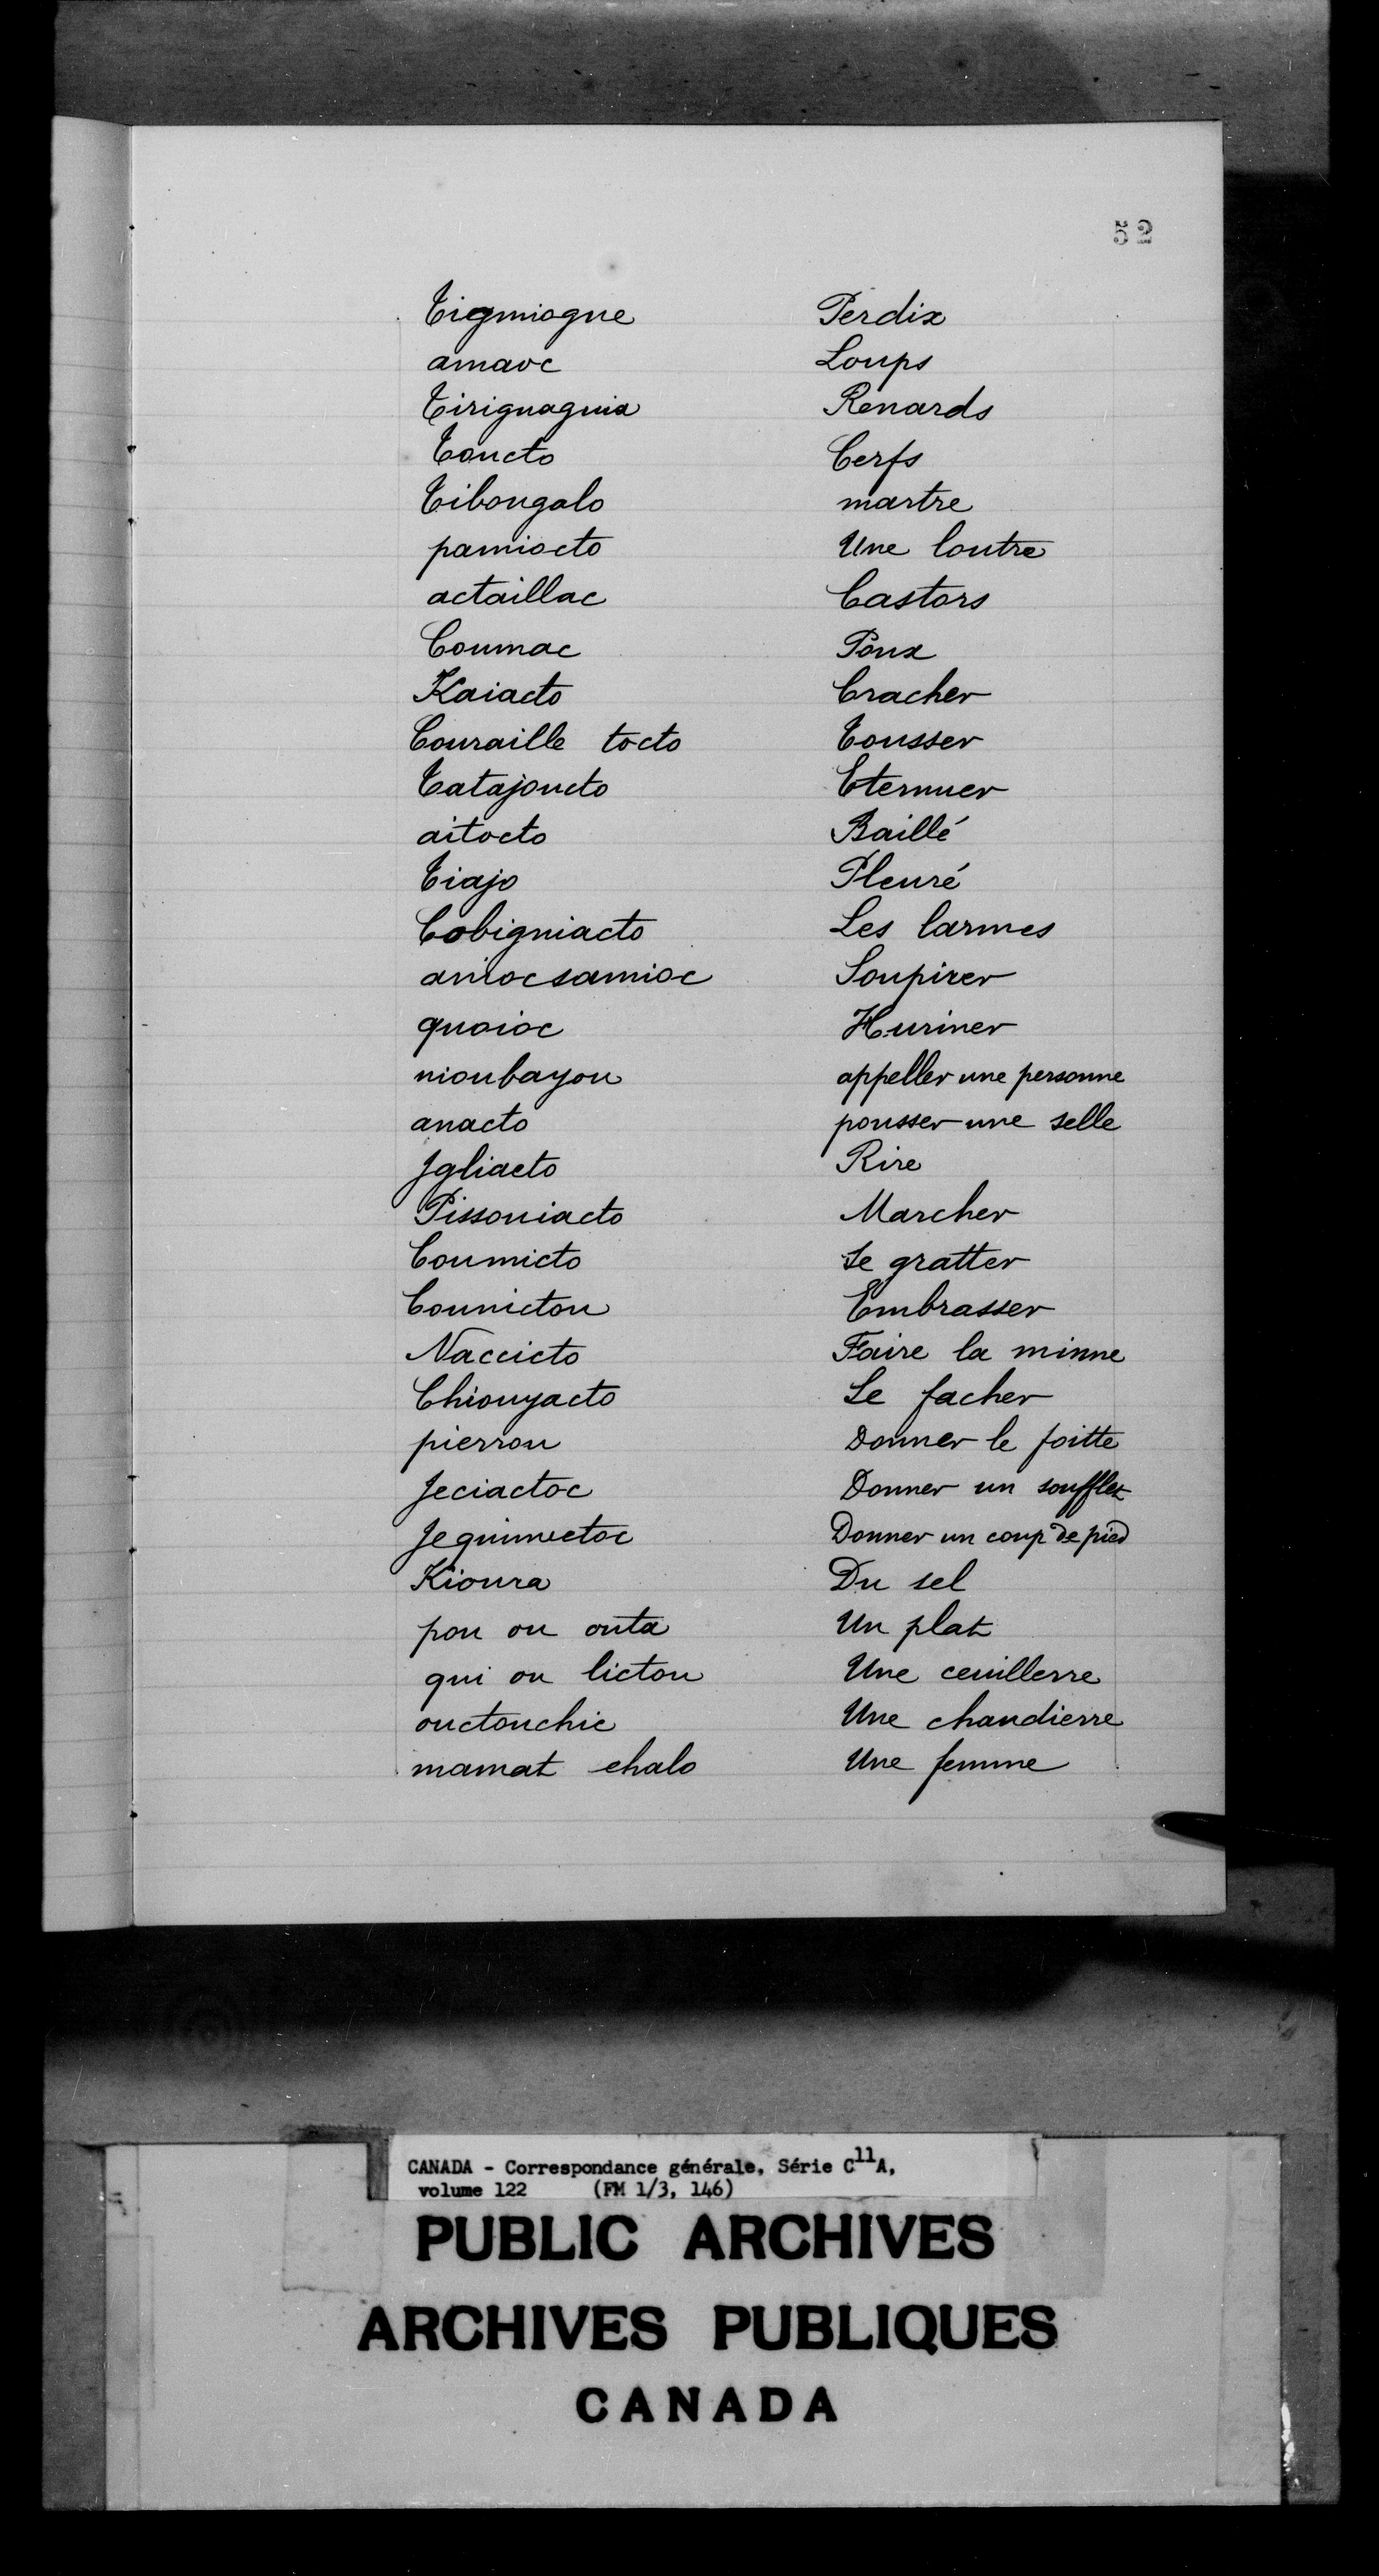 52
Tigmiogue Perdix
amaoc Loups
Tirignagnia Renards
Toucto Cerfs
Tibongalo martre
pamiocto Une loutre
actaillac Castors
Coumac Poux
Kaiacto Cracher
Couraille tocto Tousser
Tatajoucto Eternuer
aitocto Baillé
Tiajo Pleuré
Cobigniacto Les larmes
aniocsamioc Soupirer
quoioc Huriner
nioubayou appeller une personne
anacto pousser une selle
Jgliacto Rire
Pissouiacto Marcher
Coumicto Se gratter
Counictou Embrasser
Naccicto Faire la minne
Chiouyacto Se facher
pierrou Donner le foitte
Jeciactoc Donner un soufflet
Jequimectoc Donner un coup de pied
Kioura Du sel
pou ou outa Un plat
qui ou lictou Une ceuillerre
ouctouchic Une chaudierre
mamat chalo Une femme
CANADA - Correspondance générale, Série C11A,
volume 122 (FM 1/3, 146)
PUBLIC ARCHIVES
ARCHIVES PUBLIQUES
CANADA